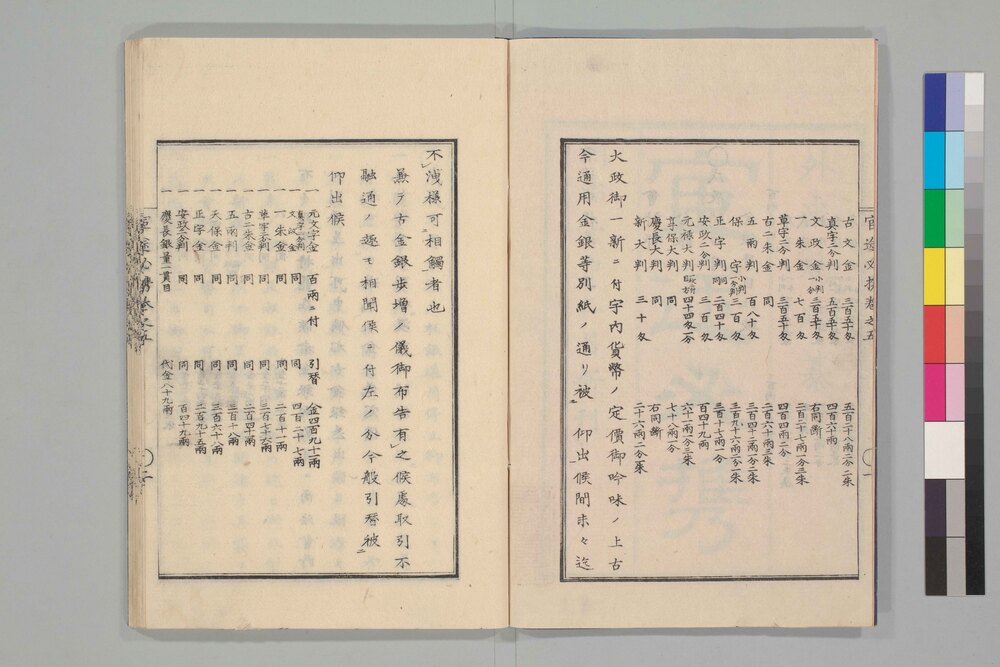 官途必携巻之五
古文金 三百五十匁 五百二十八両二分二朱
真字二分判 五百五十匁 四百六十両
文政金 小判一分 三百五十匁 右同断
一朱金 七百匁 二百二十七両一分三朱
草字二分判 三百五十匁 四百四両二分
古二朱金 同 二百六十両三朱
五両判 百八十匁 三百四十二両二分三朱
保字 小判一分判 三百匁 三百九十六両二分一朱
正字判 同同 二百四十匁 三百十七両一分
安政二分判 三百匁 百四十九両
元禄大判 四十四匁一分 六十二両二分三朱
享保大判 同 七十八両二分
慶長大判 同 右同断
新大判 三十匁 二十六両二分二朱
大政御一新ニ付宇内貨幣ノ定價御吟味ノ上古
今通用金銀等別紙ノ通リ被 仰出候間末々迄
不洩様可相觸者也
兼テ古金銀歩増ノ儀御布告有之候處取引不
融通ノ趣モ相聞候ニ付左ノ分今般引替被
仰出候
一 元文字金 百両ニ付 引替 金四百九十一両
一 文政金 真字二分判 同 同 四百二十七両
一 一朱金 同 同 二百十一両
一 草字二分判 同 同 三百七十六両
一 古二朱金 同 同 二百四十両
一 五両判 同 同 三百十八両
一 天保金 同 同 三百六十八両
一 正字金 同 同 二百九十五両
一 安政二分判 同 同 百四十九両
一 慶長銀量一貫目 代金八十九両